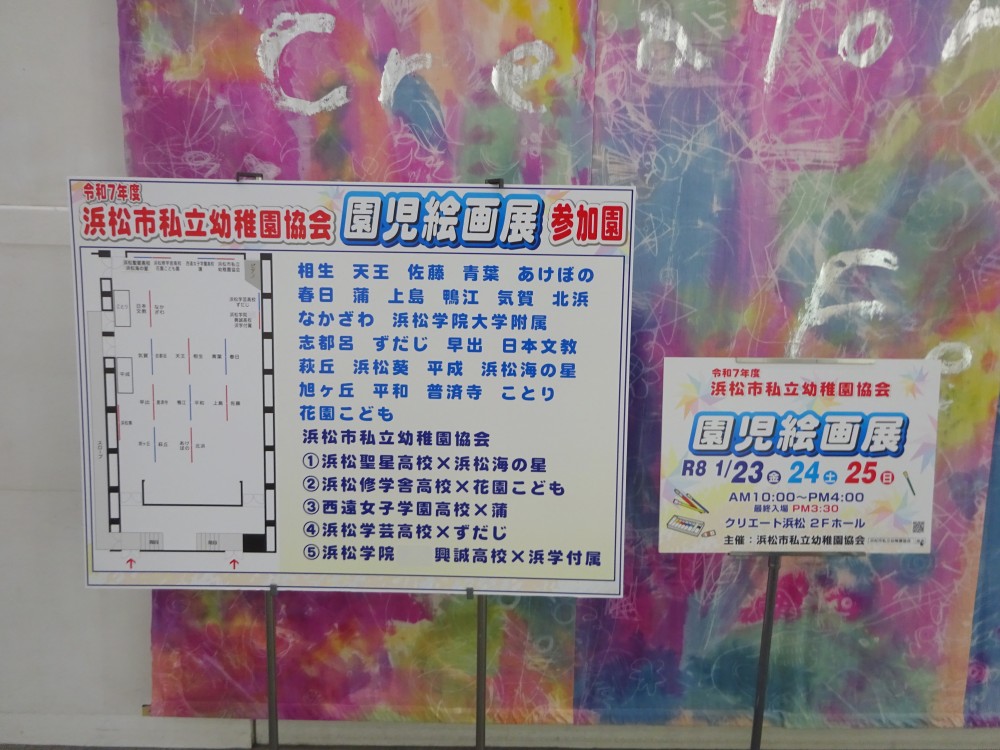 Creato
E
令和7年度
浜松市私立幼稚園協会 園児絵画展 参加園
相生 天王 佐藤 青葉 あけぼの
春日 蒲 上島 鴨江 気賀 北浜
なかざわ 浜松学院大学附属
志都呂 ずだじ 早出 日本文教
萩丘 浜松葵 平成 浜松海の星
旭ヶ丘 平和 普済寺 ことり
花園こども
浜松市私立幼稚園協会
①浜松聖星高校×浜松海の星
②浜松修学舎高校×花園こども
③西遠女子学園高校×蒲
④浜松学芸高校×ずだじ
⑤浜松学院 興誠高校×浜学付属
令和7年度
浜松市私立幼稚園協会
園児絵画展
R8 1/23金 24土 25日
AM10:00~PM4:00
最終入場 PM3:30
クリエート浜松 2Fホール
主催:浜松市私立幼稚園協会